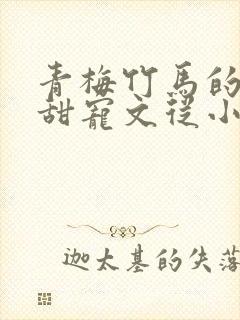 青梅竹馬的
甜寵文從小
迦太基的失落